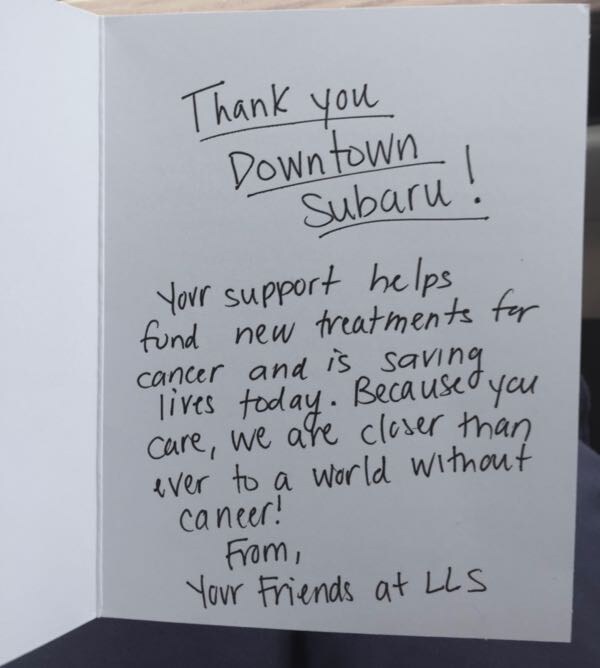 Thank you
Downtown
Subaru!
Your support helps
fund new treatments for
cancer and is saving
lives today. Because you
care, we are closer than
ever to a world without
cancer!
From,
Your Friends at LLS